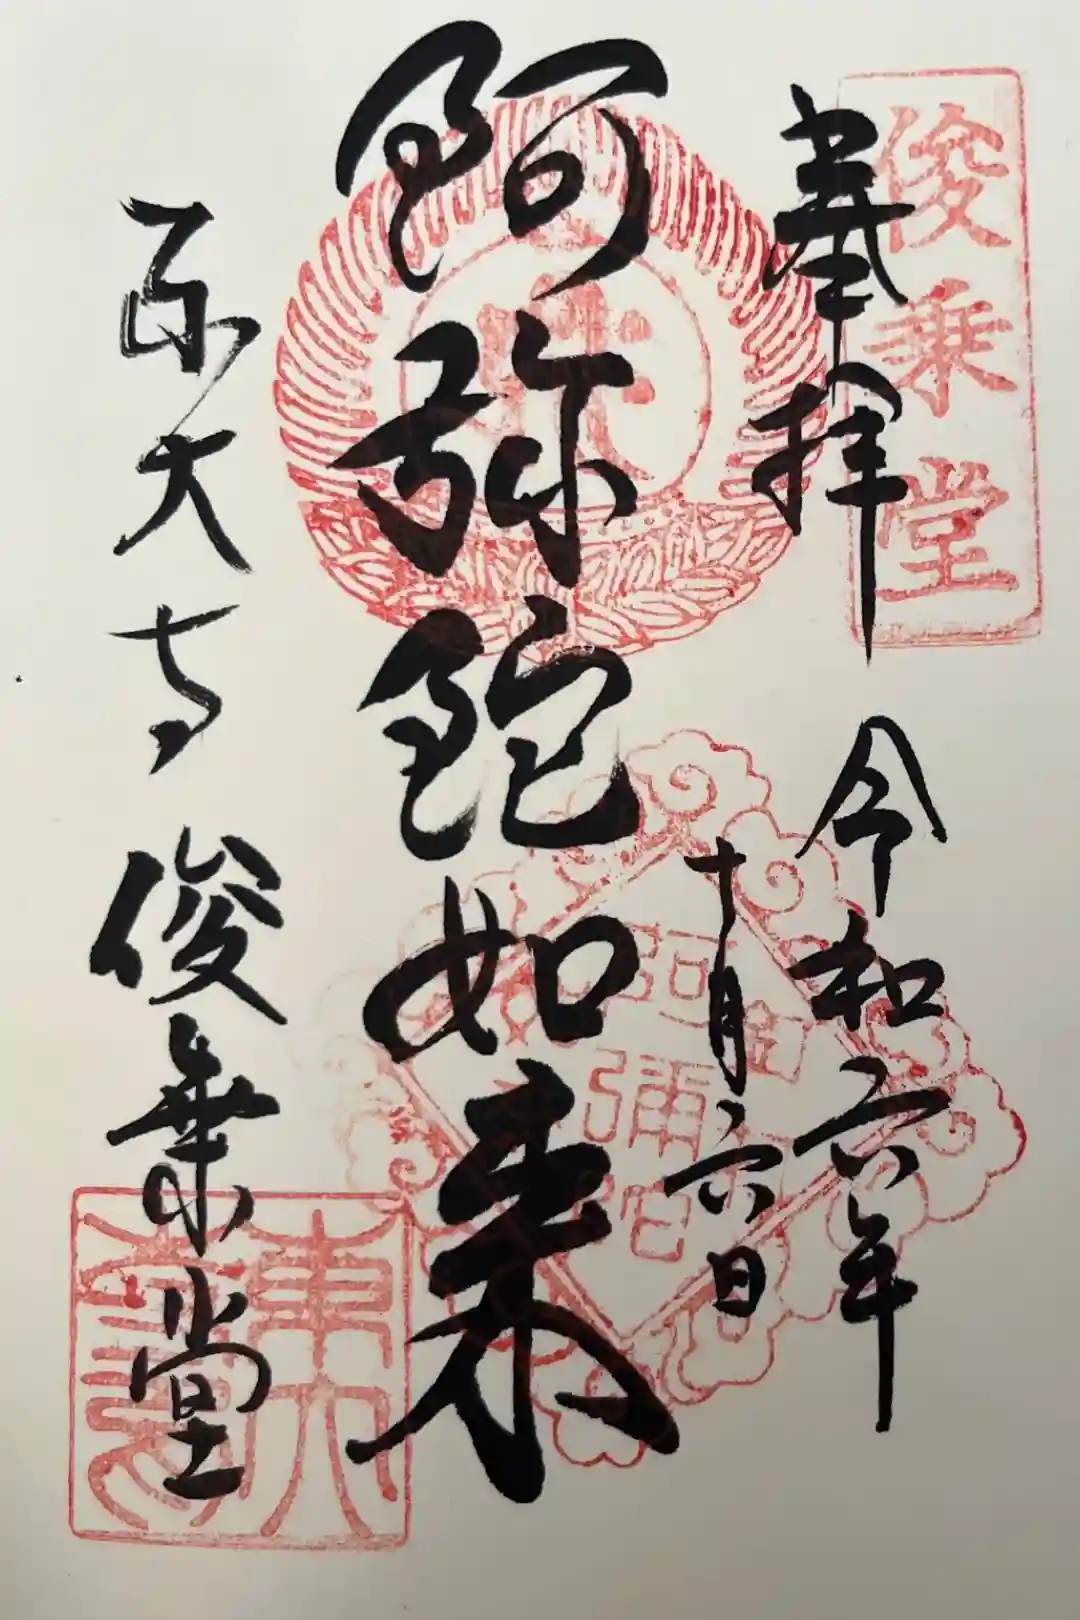 俊乗堂
奉拝 令和六年
十月六日
鈳弥鉈如来
東大寺 俊乗堂
鈳彌鉈
東大